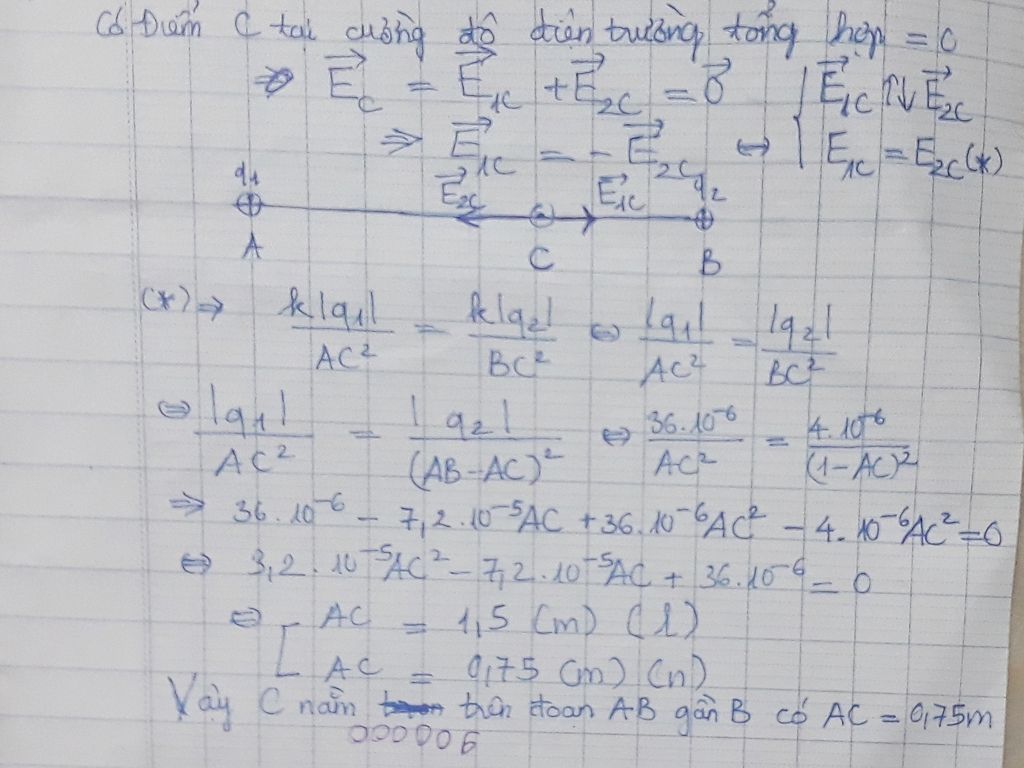 Có điểm C tại cường độ điện trường tổng hợp = 0
=> E⃗_C = E⃗_1C + E⃗_2C = 0⃗ { E⃗_1C ↑↓ E⃗_2C
=> E⃗_1C = - E⃗_2C <=> E_1C = E_2C (*)
q1 E⃗_2C E⃗_1C q2
A C B
(*) => k|q1|/AC² = k|q2|/BC² <=> |q1|/AC² = |q2|/BC²
<=> |q1|/AC² = |q2|/(AB-AC)² <=> 36.10⁻⁶/AC² = 4.10⁻⁶/(1-AC)²
=> 36.10⁻⁶ - 7,2.10⁻⁵AC + 36.10⁻⁶AC² - 4.10⁻⁶AC² = 0
<=> 3,2.10⁻⁵AC² - 7,2.10⁻⁵AC + 36.10⁻⁶ = 0
<=> [ AC = 1,5 (m) (l)
AC = 0,75 (m) (n)
Vậy C nằm trên đoạn AB gần B có AC = 0,75m